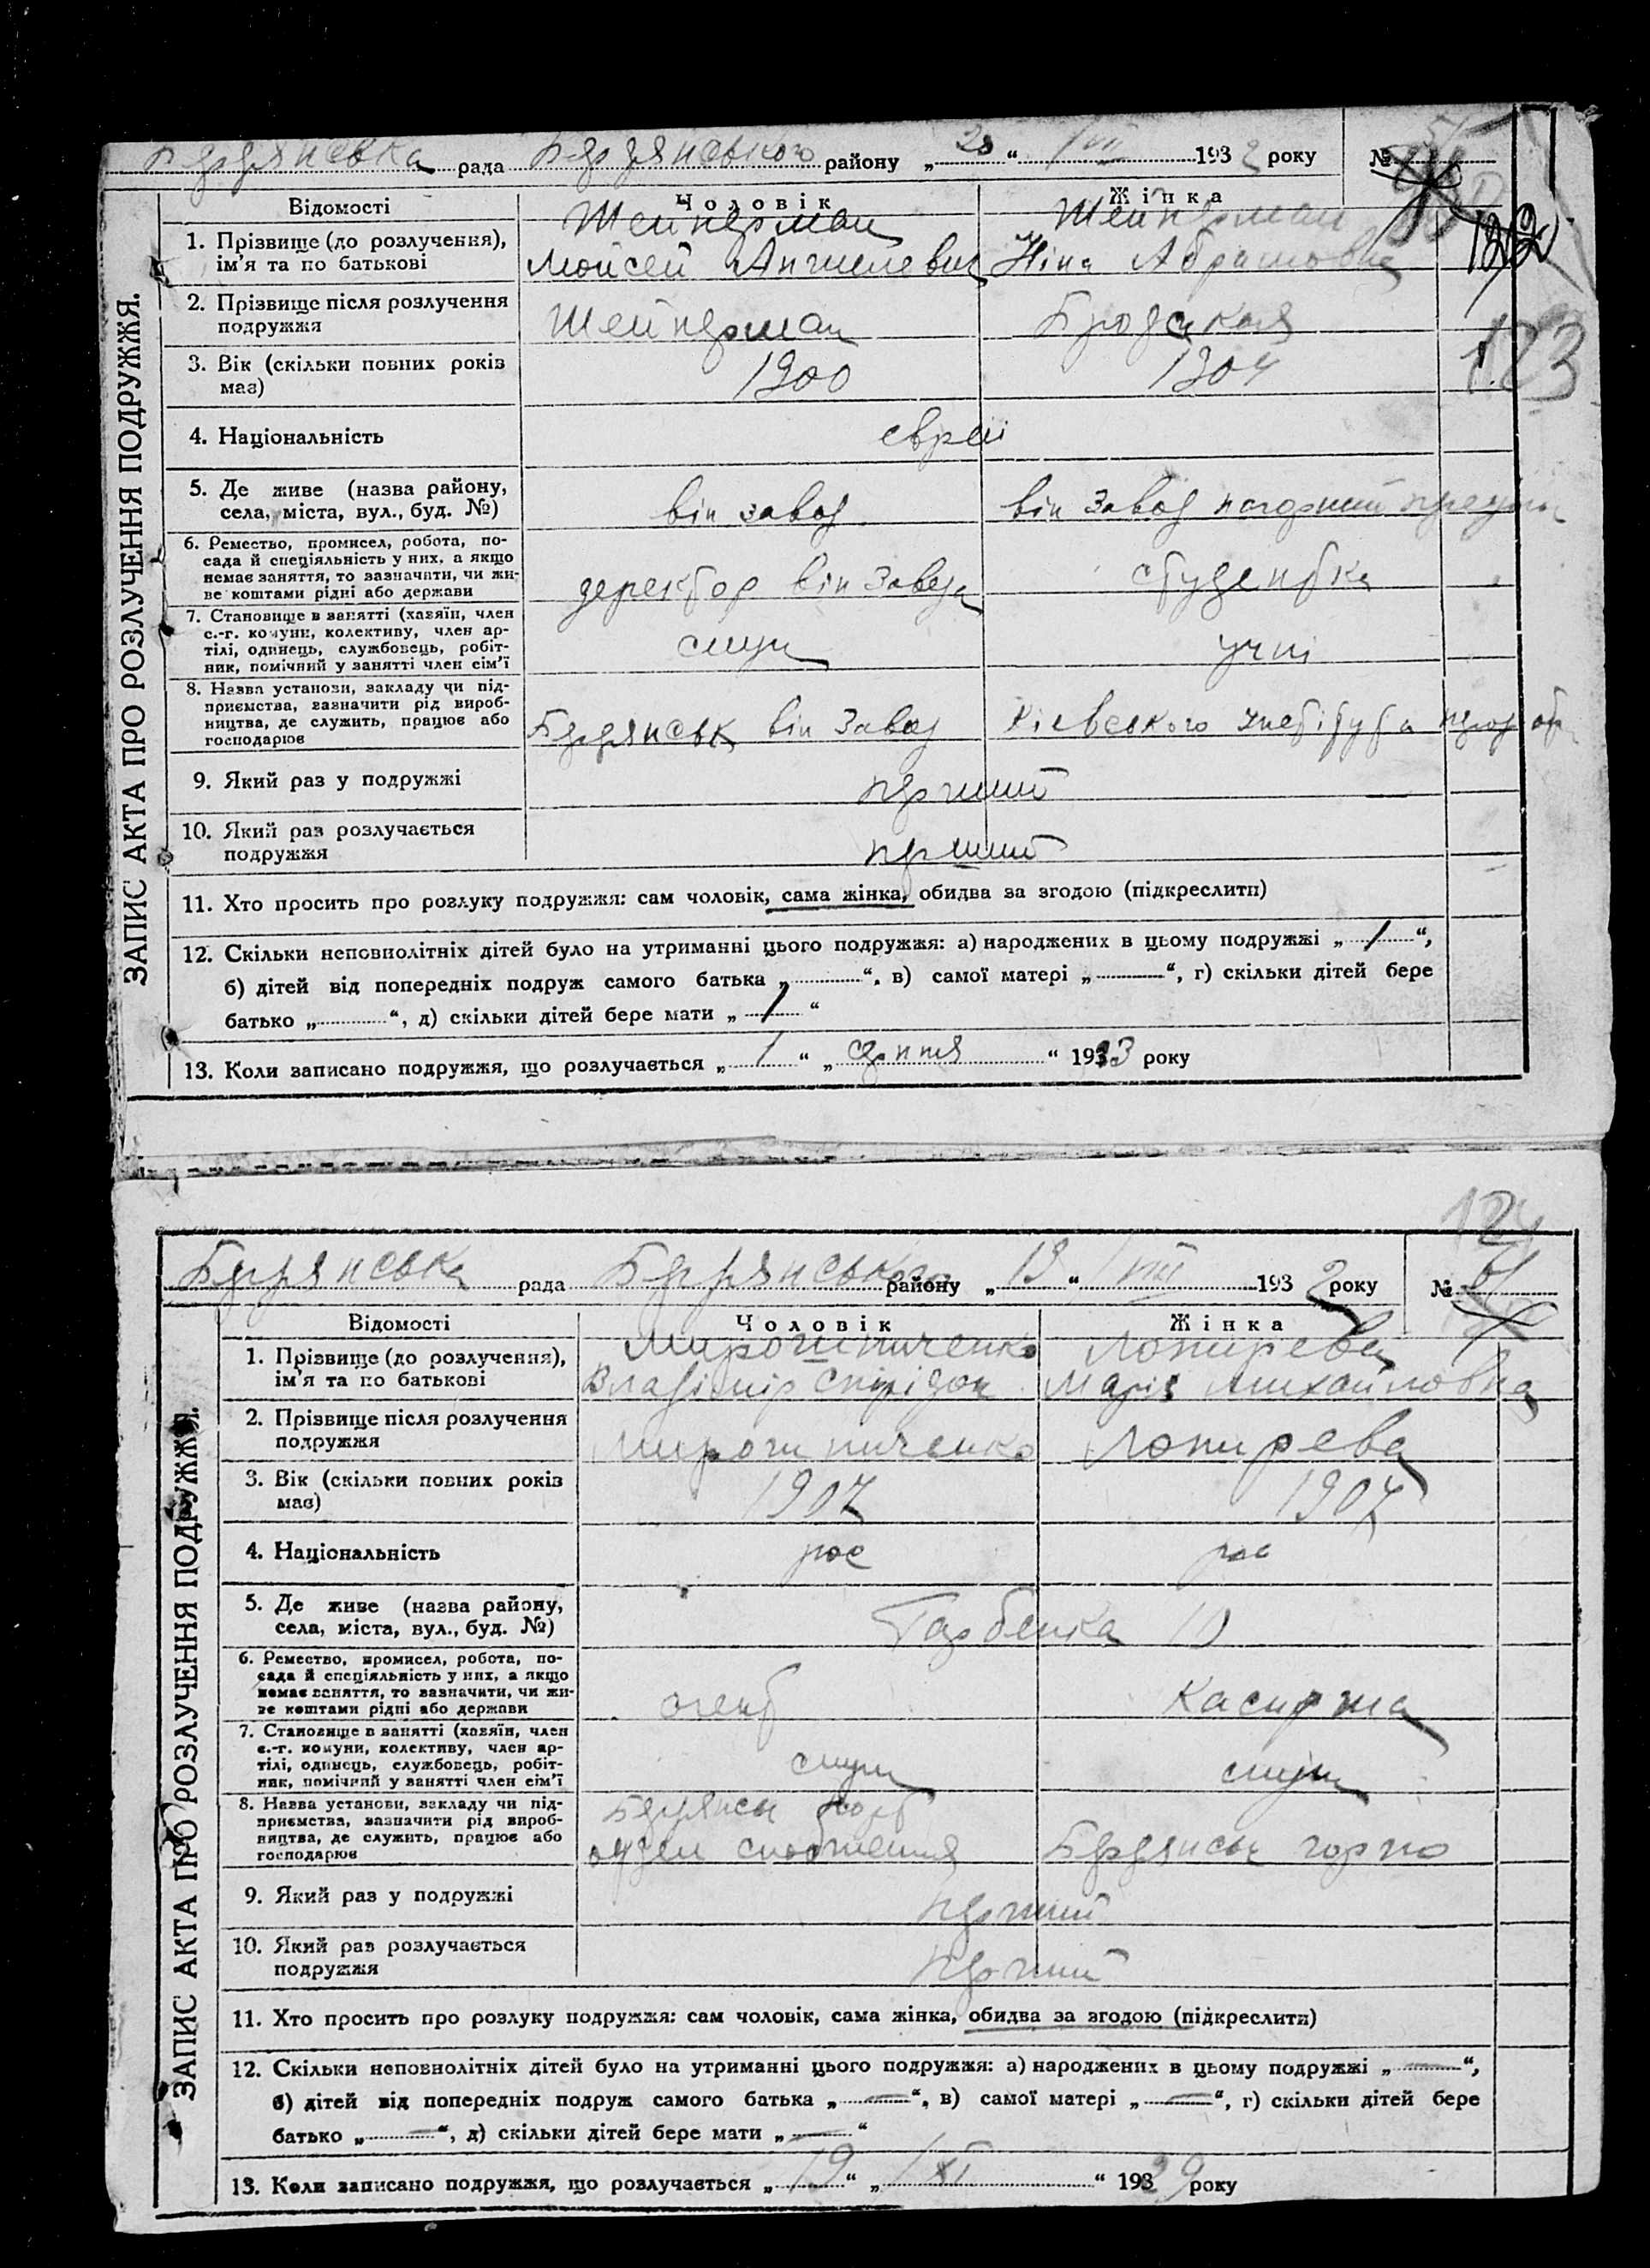 Бердянська рада Бердянського району „ 20 “ VIII 1932 року №
ЗАПИС АКТА ПРО РОЗЛУЧЕННЯ ПОДРУЖЖЯ.
Відомості Чоловік Жінка
1. Прізвище (до розлучення), ім'я та по батькові
Шейнерман Шейнерман
Мойсей Анчилевич Ніна Абрамовна
122
2. Прізвище після розлучення подружжя
Шейнерман Бродская
123
3. Вік (скільки повних років має)
1900 1904
4. Національність
євреї
5. Де живе (назва району, села, міста, вул., буд. №)
він завод він завод
6. Ремество, промисел, робота, по-
сада й спеціяльність у них, а якщо
немає заняття, то зазначити, чи жи-
ве коштами рідні або держави
деректор він завода студентка
7. Становище в занятті (хазяїн, член
с.-г. комуни, колективу, член ар-
тілі, одинець, службовець, робіт-
ник, помічний у занятті член сім'ї
служ учні
8. Назва установи, закладу чи під-
приємства, зазначити рід вироб-
ництва, де служить, працює або
господарює
Бердянськ він завод Київського інстітута
9. Який раз у подружжі
перший
10. Який раз розлучається
подружжя
перший
11. Хто просить про розлуку подружжя: сам чоловік, сама жінка, обидва за згодою (підкреслити)
12. Скільки неповнолітніх дітей було на утриманні цього подружжя: а) народжених в цьому подружжі „ 1 “,
б) дітей від попередніх подруж самого батька „ “, в) самої матері „ “, г) скільки дітей бере
батько „ “, д) скільки дітей бере мати „ 1 “
13. Коли записано подружжя, що розлучається „ 1 “ „ серпня “ 1923 року
124
Бердянська рада Бердянського району „ 19 “ VIII 1932 року № 61
ЗАПИС АКТА ПРО РОЗЛУЧЕННЯ ПОДРУЖЖЯ.
Відомості Чоловік Жінка
1. Прізвище (до розлучення),
ім'я та по батькові
Мирошниченко Лопирева
Владімір Спірідон Марія Михайловна
2. Прізвище після розлучення
подружжя
Мирошниченко Лопирева
3. Вік (скільки повних років
має)
1907 1907
4. Національність
рос рос
5. Де живе (назва району,
села, міста, вул., буд. №)
10
6. Ремество, промисел, робота, по-
сада й спеціяльність у них, а якщо
немає заняття, то зазначити, чи жи-
ве коштами рідні або держави
агент касирша
7. Становище в занятті (хазяїн, член
с.-г. комуни, колективу, член ар-
тілі, одинець, службовець, робіт-
ник, помічний у занятті член сім'ї
служ служ
8. Назва установи, закладу чи під-
приємства, зазначити рід вироб-
ництва, де служить, працює або
господарює
Бердянськ порт
Бердянськ горпо
9. Який раз у подружжі
перший
10. Який раз розлучається
подружжя
перший
11. Хто просить про розлуку подружжя: сам чоловік, сама жінка, обидва за згодою (підкреслити)
12. Скільки неповнолітніх дітей було на утриманні цього подружжя: а) народжених в цьому подружжі „ — “,
б) дітей від попередніх подруж самого батька „ — “, в) самої матері „ — “, г) скільки дітей бере
батько „ — “, д) скільки дітей бере мати „ — “
13. Коли записано подружжя, що розлучається „ 19 “ „ XI “ 1929 року